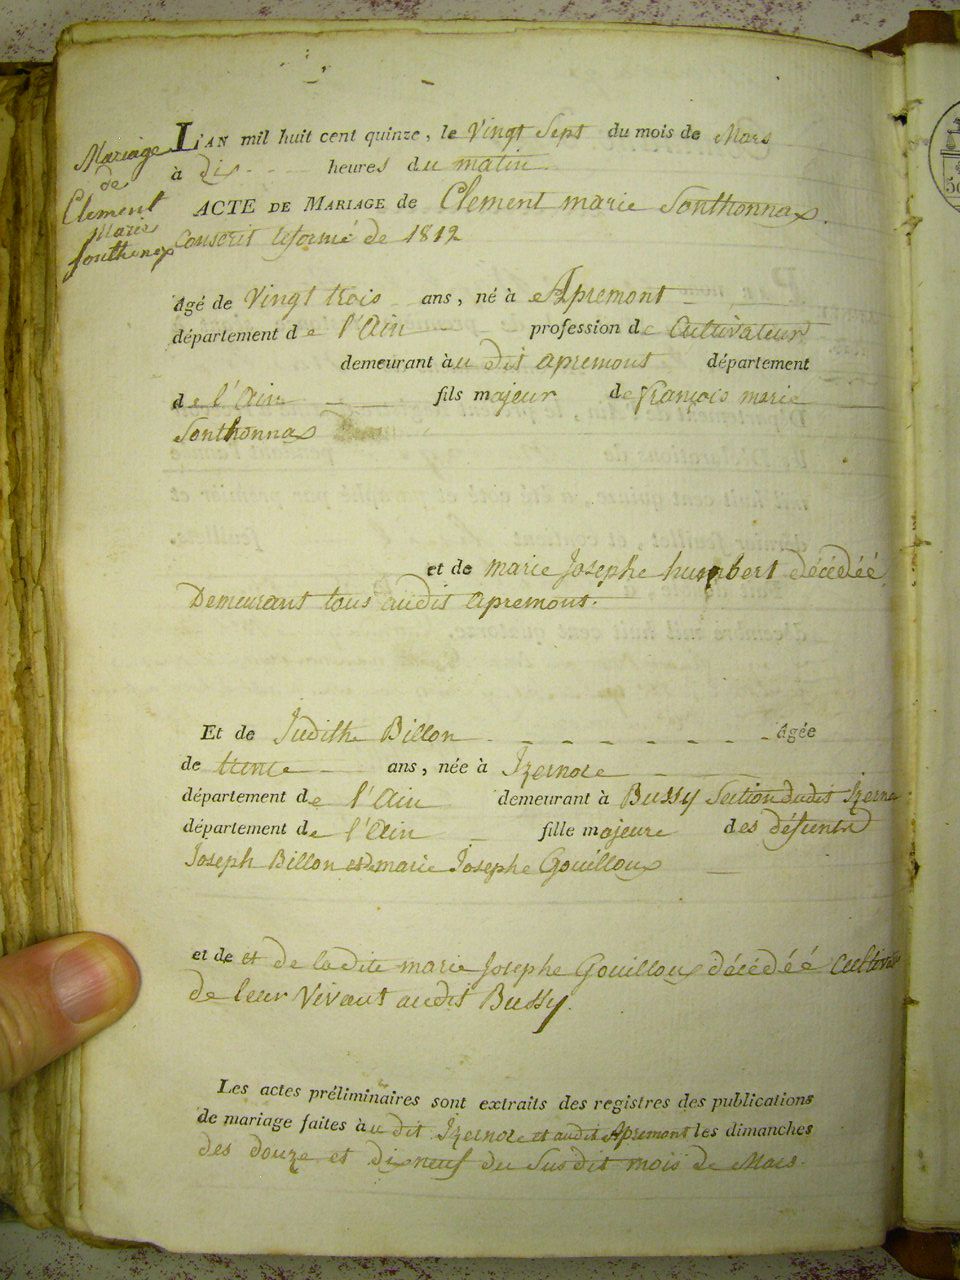 Mariage
de
Clement
Marie
Sonthonax
L'AN mil huit cent quinze, le Vingt Sept du mois de Mars
à dix heures du matin
ACTE DE MARIAGE de Clement marie Sonthonnax
Conscrit reformé de 1812
âgé de Vingt trois ans, né à Apremont
département de l'Ain profession de Cultivateur
demeurant àu dit apremont département
de l'Ain fils majeur de françois marie
Sonthonnax
et de marie Josephe humbert décédéé
Demeurant tous audit apremont.
Et de Judithe Billon âgée
de trente ans, née à Izernore
département de l'Ain demeurant à Bussy Section dudit Izerne
département de l'Ain fille majeure des défunts
Joseph Billon et de marie Josephe Gouilloux
et de et de ladite marie Josephe Gouilloux décédéé
de leur Vivant audit Bussy.
Les actes préliminaires sont extraits des registres des publications
de mariage faites àu dit Izernore et audit Apremont les dimanches
des douze et dix neuf du Susdit mois de Mars.